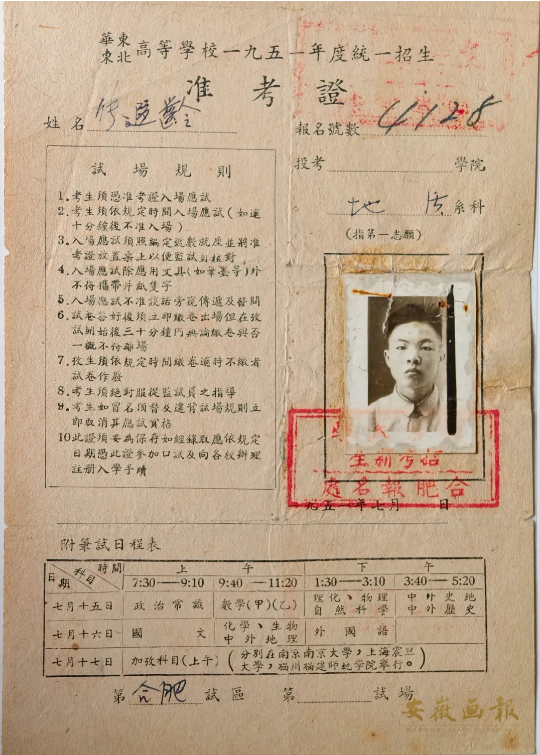 華東
東北 高等學校一九五一年度統一招生
准考證
姓名
報名號數 4128
投考 學院
地質系科
(指第一志願)
試場規則
1.考生須憑准考證入場應試
2.考生須依規定時間入場應試(如逾
十分鐘後不准入場)
3.入場應試須照編定號數就座並將准
考證放置桌上以便監試員核對
4.入場應試除應用文具(如筆墨等)外
不得攜帶片紙隻字
5.入場應試不准談話旁窺傳遞及發問
6.試卷答好後須立即繳卷出場但在攷
試開始後三十分鐘內無論繳卷與否
一概不得離場
7.攷生須依規定時間繳卷逾時不繳者
試卷作廢
8.考生須絕對服從監試員之指導
9.考生如冒名頂替及違背試場規則立
即取消其應試資格
10此證須妥為保存如經錄取應依規定
日期憑此證參加口試及向各校辦理
註冊入學手續
招考新生
合肥報名處
一九五一年七月 日
附筆試日程表
時間 科目 日期 上午 下午
7:30—9:10 9:40—11:20 1:30—3:10 3:40—5:20
七月十五日 政治常識 數學(甲)(乙) 理化、物理 自然科學 中外史地 中外歷史
七月十六日 國文 化學、生物 中外地理 外國語
七月十七日 加攷科目(上午) (分別在南京南京大學,上海震旦
大學,福州福建師範學院舉行。)
第合肥試區 第 試場
安徽画报